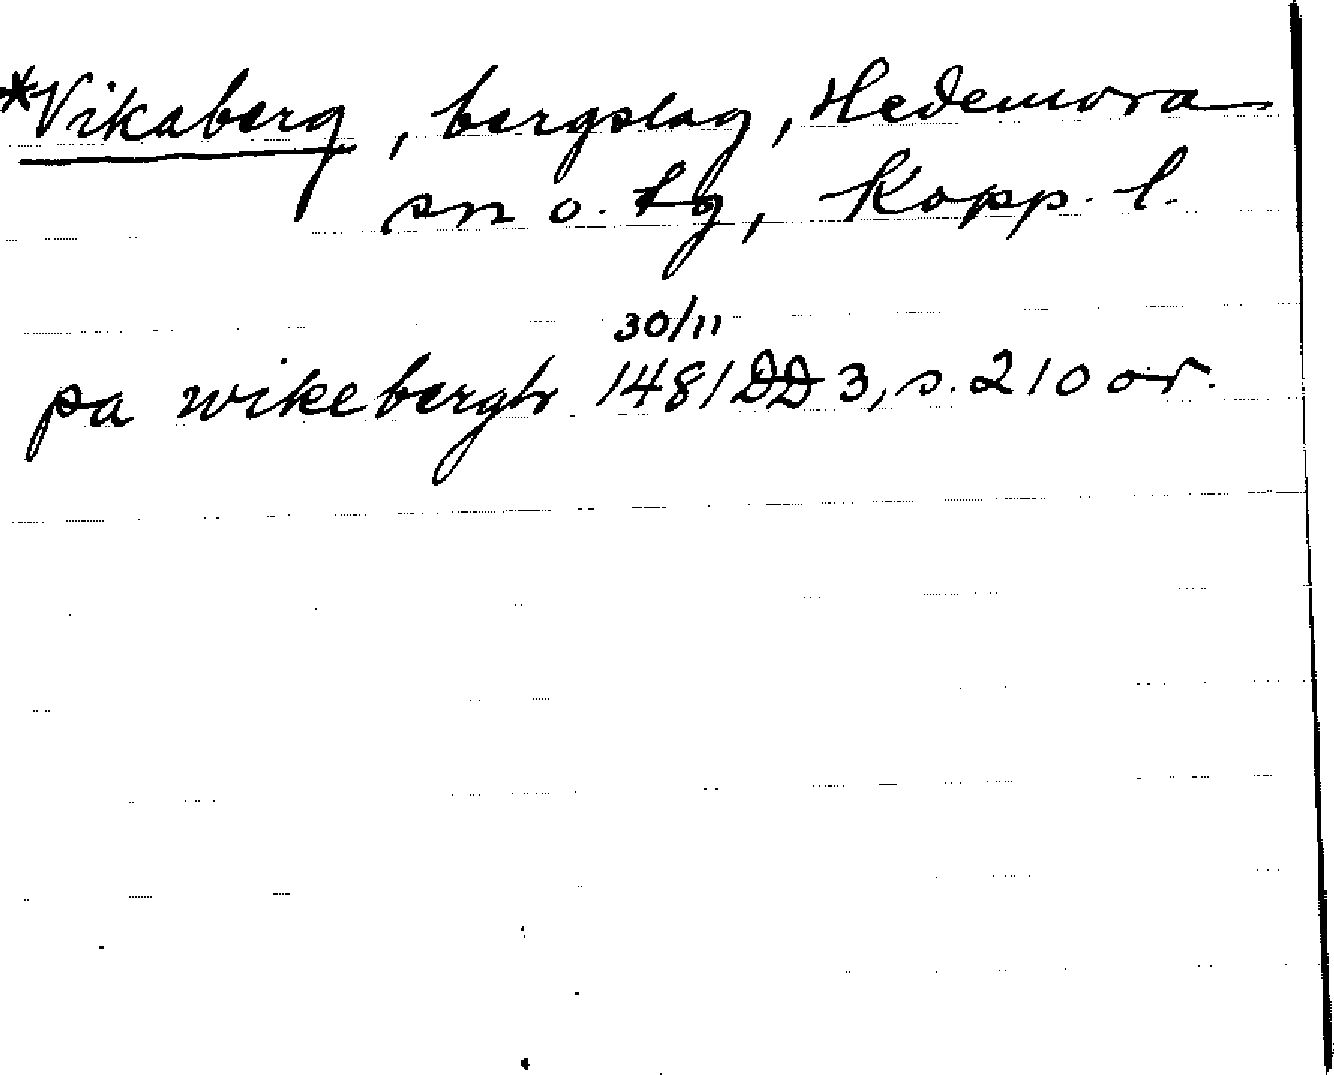 *Vikaberg, bergslag, Hedemora
sn o. tg, Kopp. l.
30/11
pa wikebergh 1481 DD 3, s. 210 or.